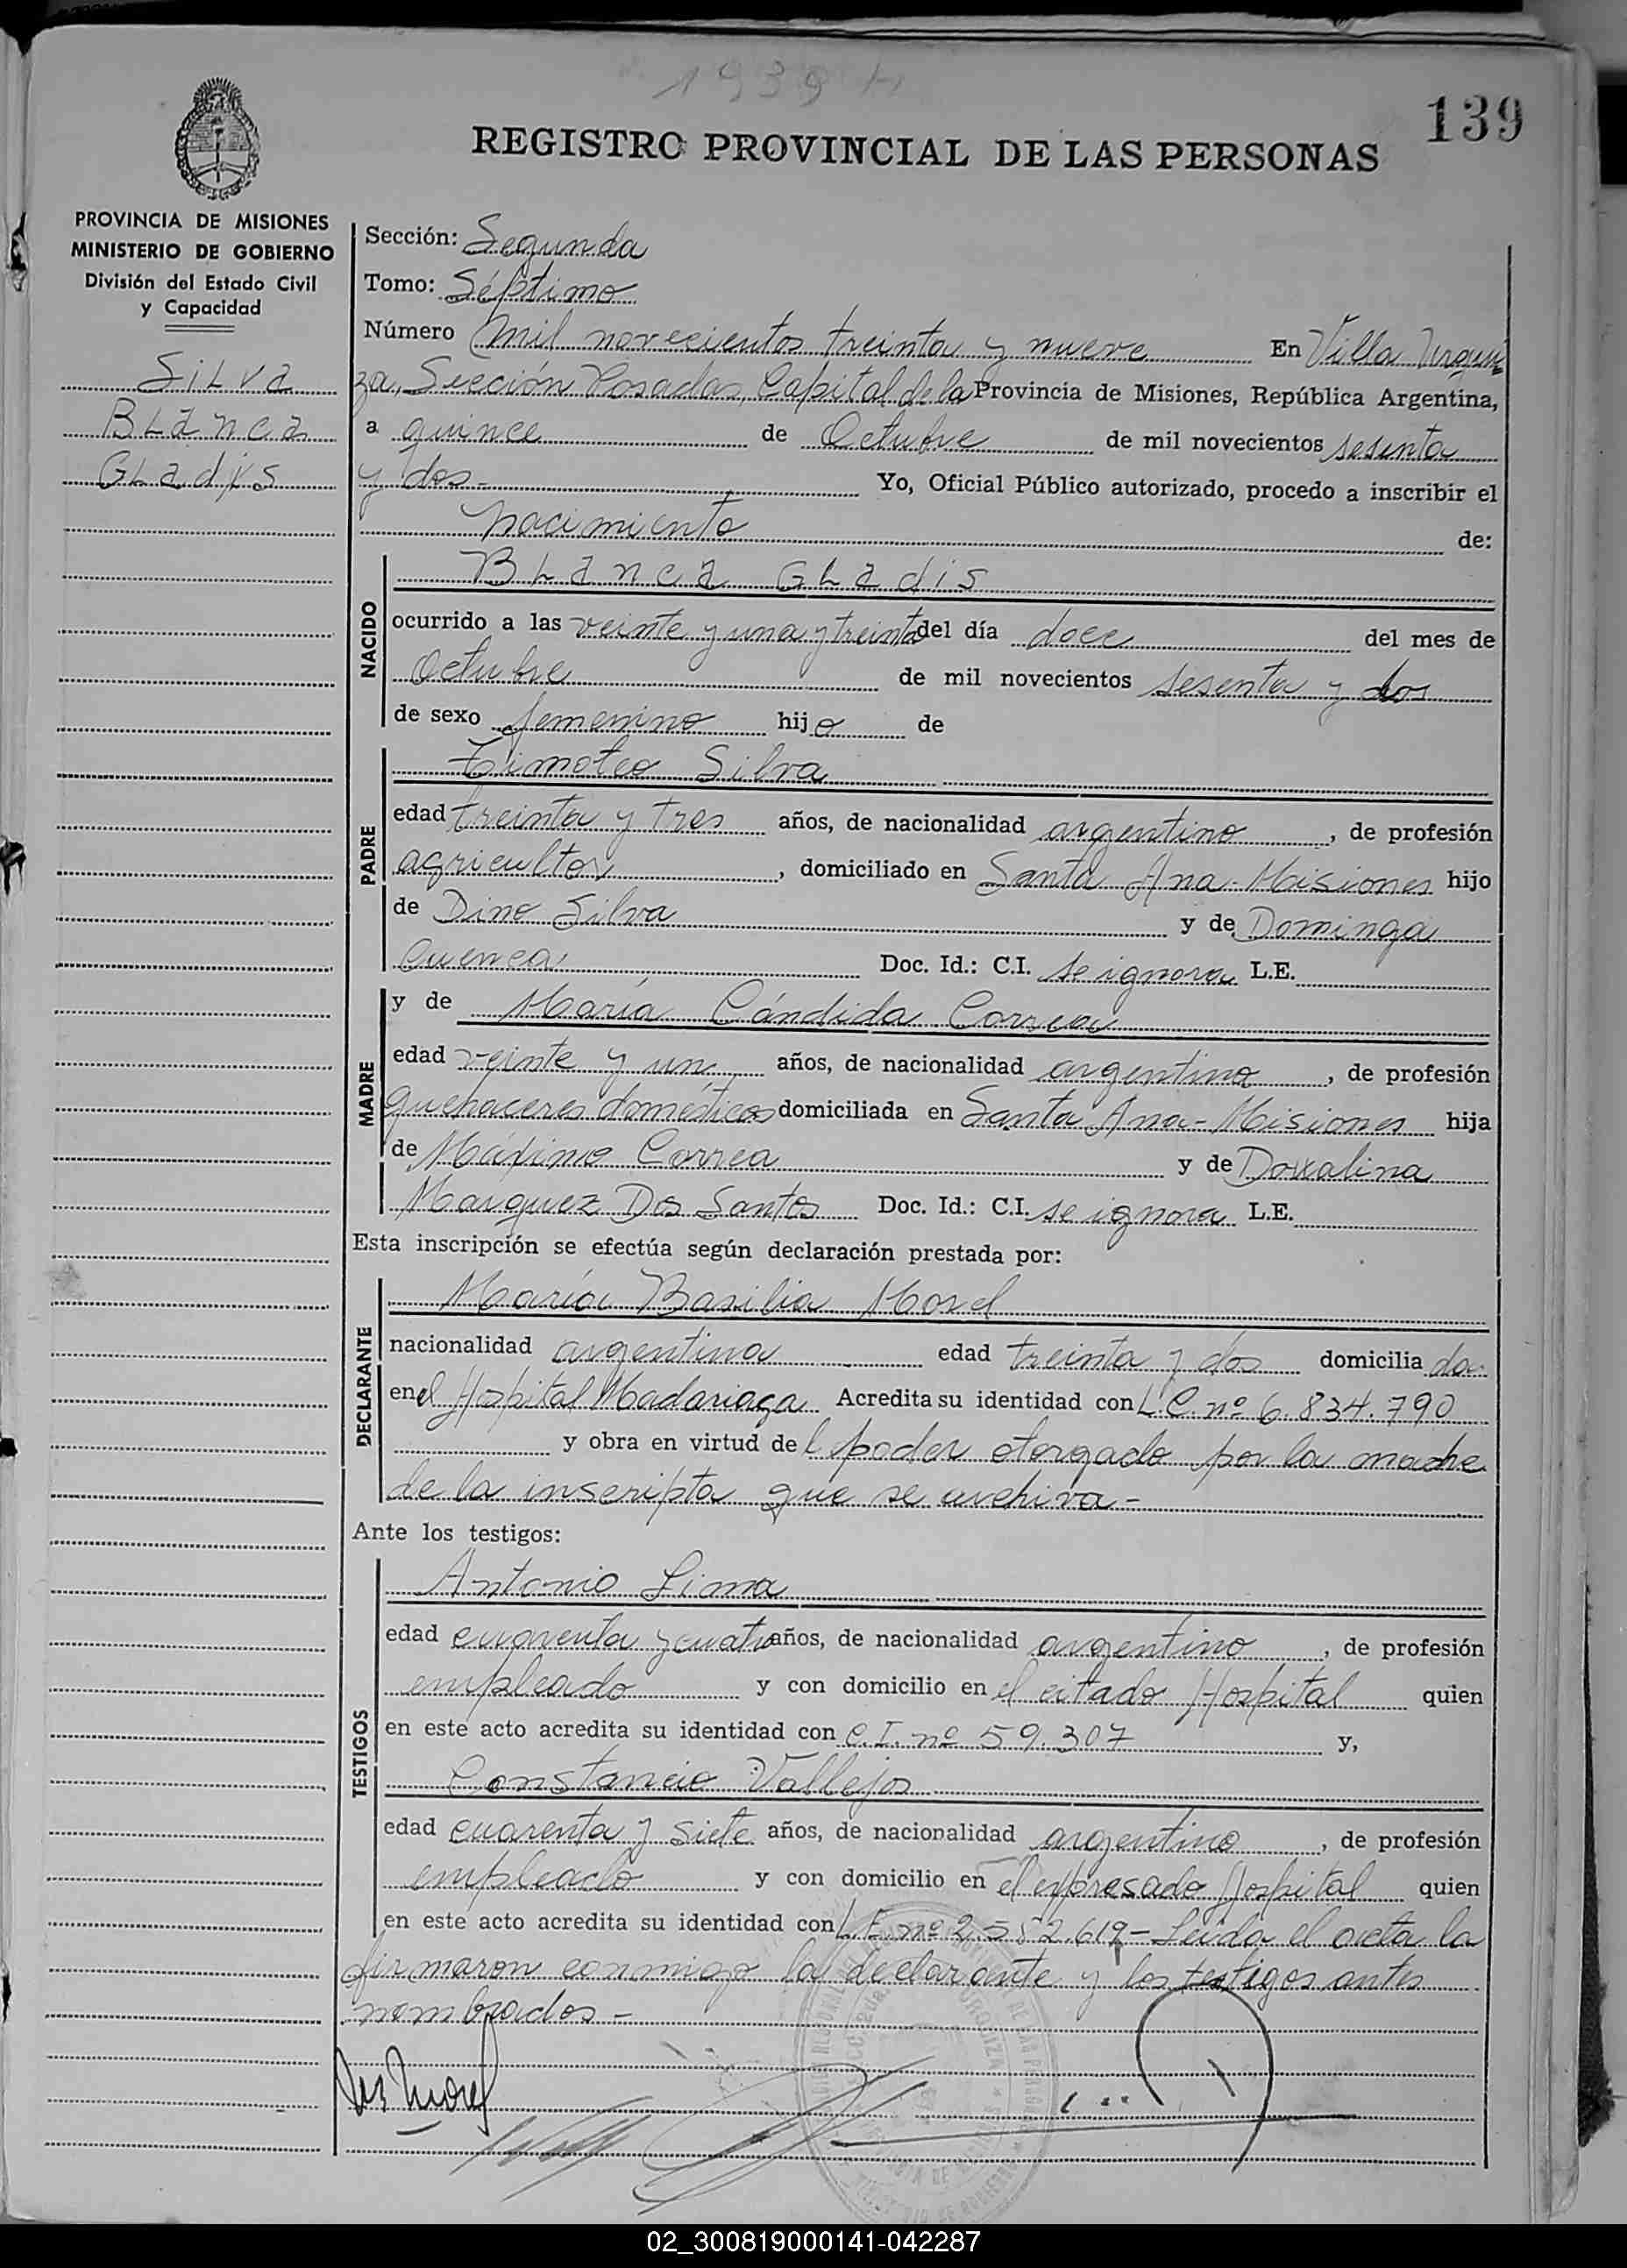 1939 H
139
REGISTRO PROVINCIAL DE LAS PERSONAS
PROVINCIA DE MISIONES
MINISTERIO DE GOBIERNO
División del Estado Civil
y Capacidad
Silva
Blanca
Gladys
Sección: Segunda
Tomo: Séptimo
Número Mil novecientos treinta y nueve En Villa Urquiza,
Sección Posadas, Capital de la Provincia de Misiones, República Argentina,
a quince de Octubre de mil novecientos sesenta
y dos - Yo, Oficial Público autorizado, procedo a inscribir el
nacimiento de:
NACIDO
Blanca Gladis
ocurrido a las veinte y una y treinta del día doce del mes de
Octubre de mil novecientos sesenta y dos
de sexo femenino hijo de
PADRE
Timoteo Silva
edad treinta y tres años, de nacionalidad argentino, de profesión
agricultor, domiciliado en Santa Ana - Misiones hijo
de Dino Silva y de Dominga
Cuenca Doc. Id.: C.I. se ignora L.E.
MADRE
y de María Cándida Correa
edad veinte y un años, de nacionalidad argentina, de profesión
quehaceres domésticos domiciliada en Santa Ana - Misiones hija
de Máximo Correa y de Doralina
Marquez Dos Santos Doc. Id.: C.I. se ignora L.E.
Esta inscripción se efectúa según declaración prestada por:
DECLARANTE
María Basilia Morel
nacionalidad argentina edad treinta y dos domicilia da
en el Hospital Madariaga Acredita su identidad con L.C. nº 6.834.790
y obra en virtud del poder otorgado por la madre
de la inscripta que se archiva -
Ante los testigos:
TESTIGOS
Antonio Lima
edad cuarenta y cuatro años, de nacionalidad argentino, de profesión
empleado y con domicilio en el citado Hospital quien
en este acto acredita su identidad con C.I. nº 59.307 y,
Constancio Vallejos
edad cuarenta y siete años, de nacionalidad argentino, de profesión
empleado y con domicilio en el expresado Hospital quien
en este acto acredita su identidad con L.E. nº 2.552.619 - Leída el acta la
firmaron conmigo la declarante y los testigos antes
nombrados -
Morel
02_300819000141-042287